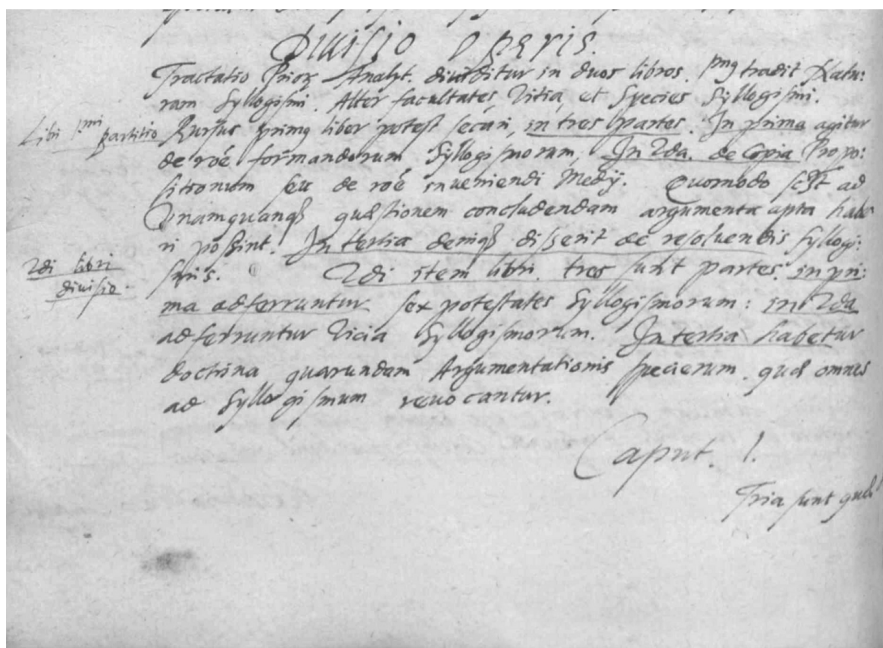 Divisio Operis.
Tractatio Priorᷣ Analyt. dividitur in duos libros. Pmꝰ tradit Natu:
ram Syllogismi. Alter facultates, Vitia, et Species Syllogismi.
Libi Pmi partitio
Rursus primꝰ liber potest secari, in tres partes. In prima agitur
de roē formandorum Syllogismorum, In 2da. de Copia Propo:
sitionum seu de roē inveniendi Medij. Quomodo sclt ad
Vnamquanqꝫ quæstionem concludendam argumenta apta habe
ri possint. In tertia deniqꝫ disserit de resolvendis Syllogi:
smis. 2di item libri tres sunt partes. in pri:
2di libri
divisio.
ma adferruntur sex potestates Syllogismorum: in 2da
adferruntur Vicia Syllogismorum. In tertia habetur
doctrina quarundam Argumentationis specierum. quæ omnes
ad Syllogismum revocantur.
Caput. 1.
Tria sunt